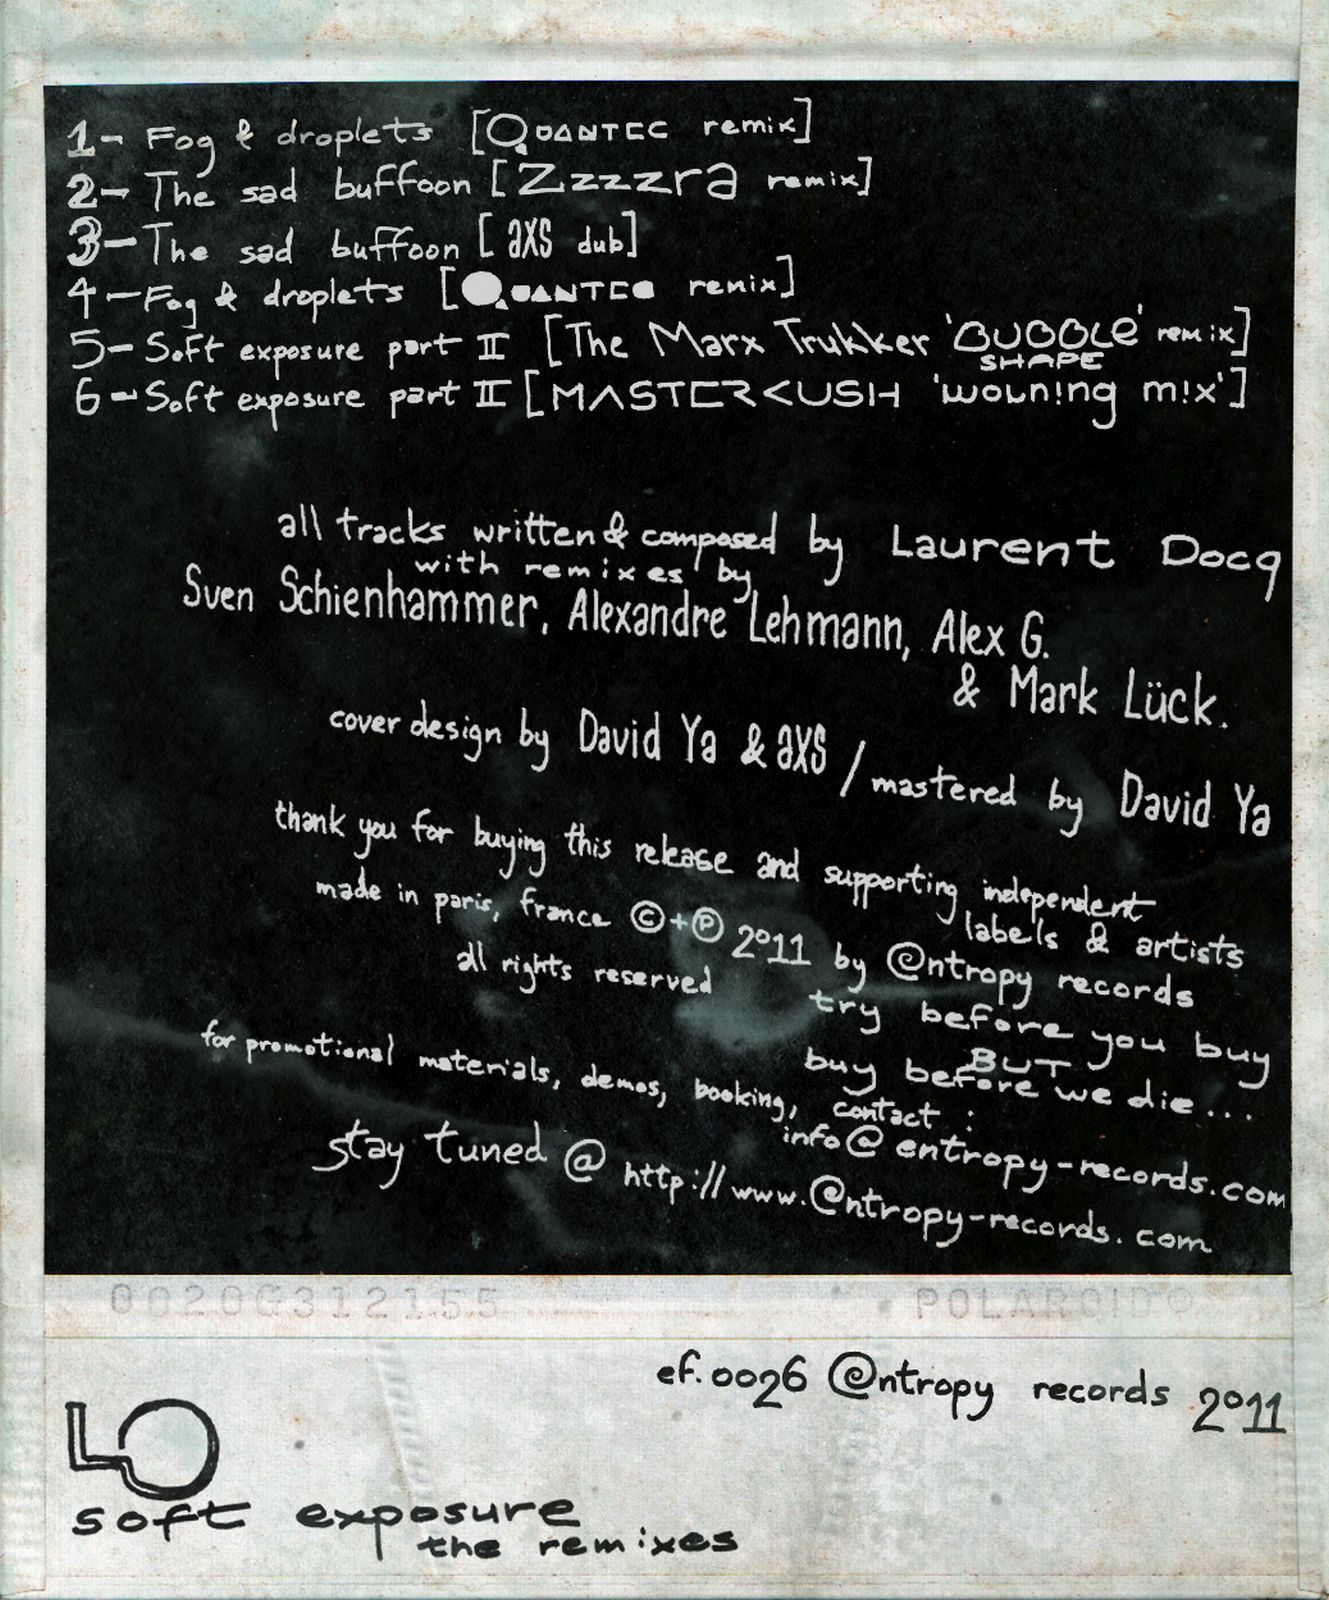 1- Fog & droplets [QUANTEC remix]
2- The sad buffoon [Zzzzzra remix]
3- The sad buffoon [aXS dub]
4- Fog & droplets [QUANTEC remix]
5- Soft exposure part II [The Marx Trukker 'BUBBLE' remix]
SHAPE
6- Soft exposure part II [MASTERKUSH 'woLn!ng m!x']
all tracks written & composed by Laurent Docq
with remixes by
Sven Schienhammer, Alexandre Lehmann, Alex G.
& Mark Lück.
cover design by David Ya & aXS / mastered by David Ya
thank you for buying this release and supporting independent
labels & artists
made in paris, france ©+℗ 2011 by @ntropy records
all rights reserved
try before you buy
BUT
buy before we die...
for promotional materials, demos, booking, contact :
info@entropy-records.com
stay tuned @ http://www.@ntropy-records.com
0020G312155 POLAROID®
ef.0026 @ntropy records 2011
LO
soft exposure
the remixes